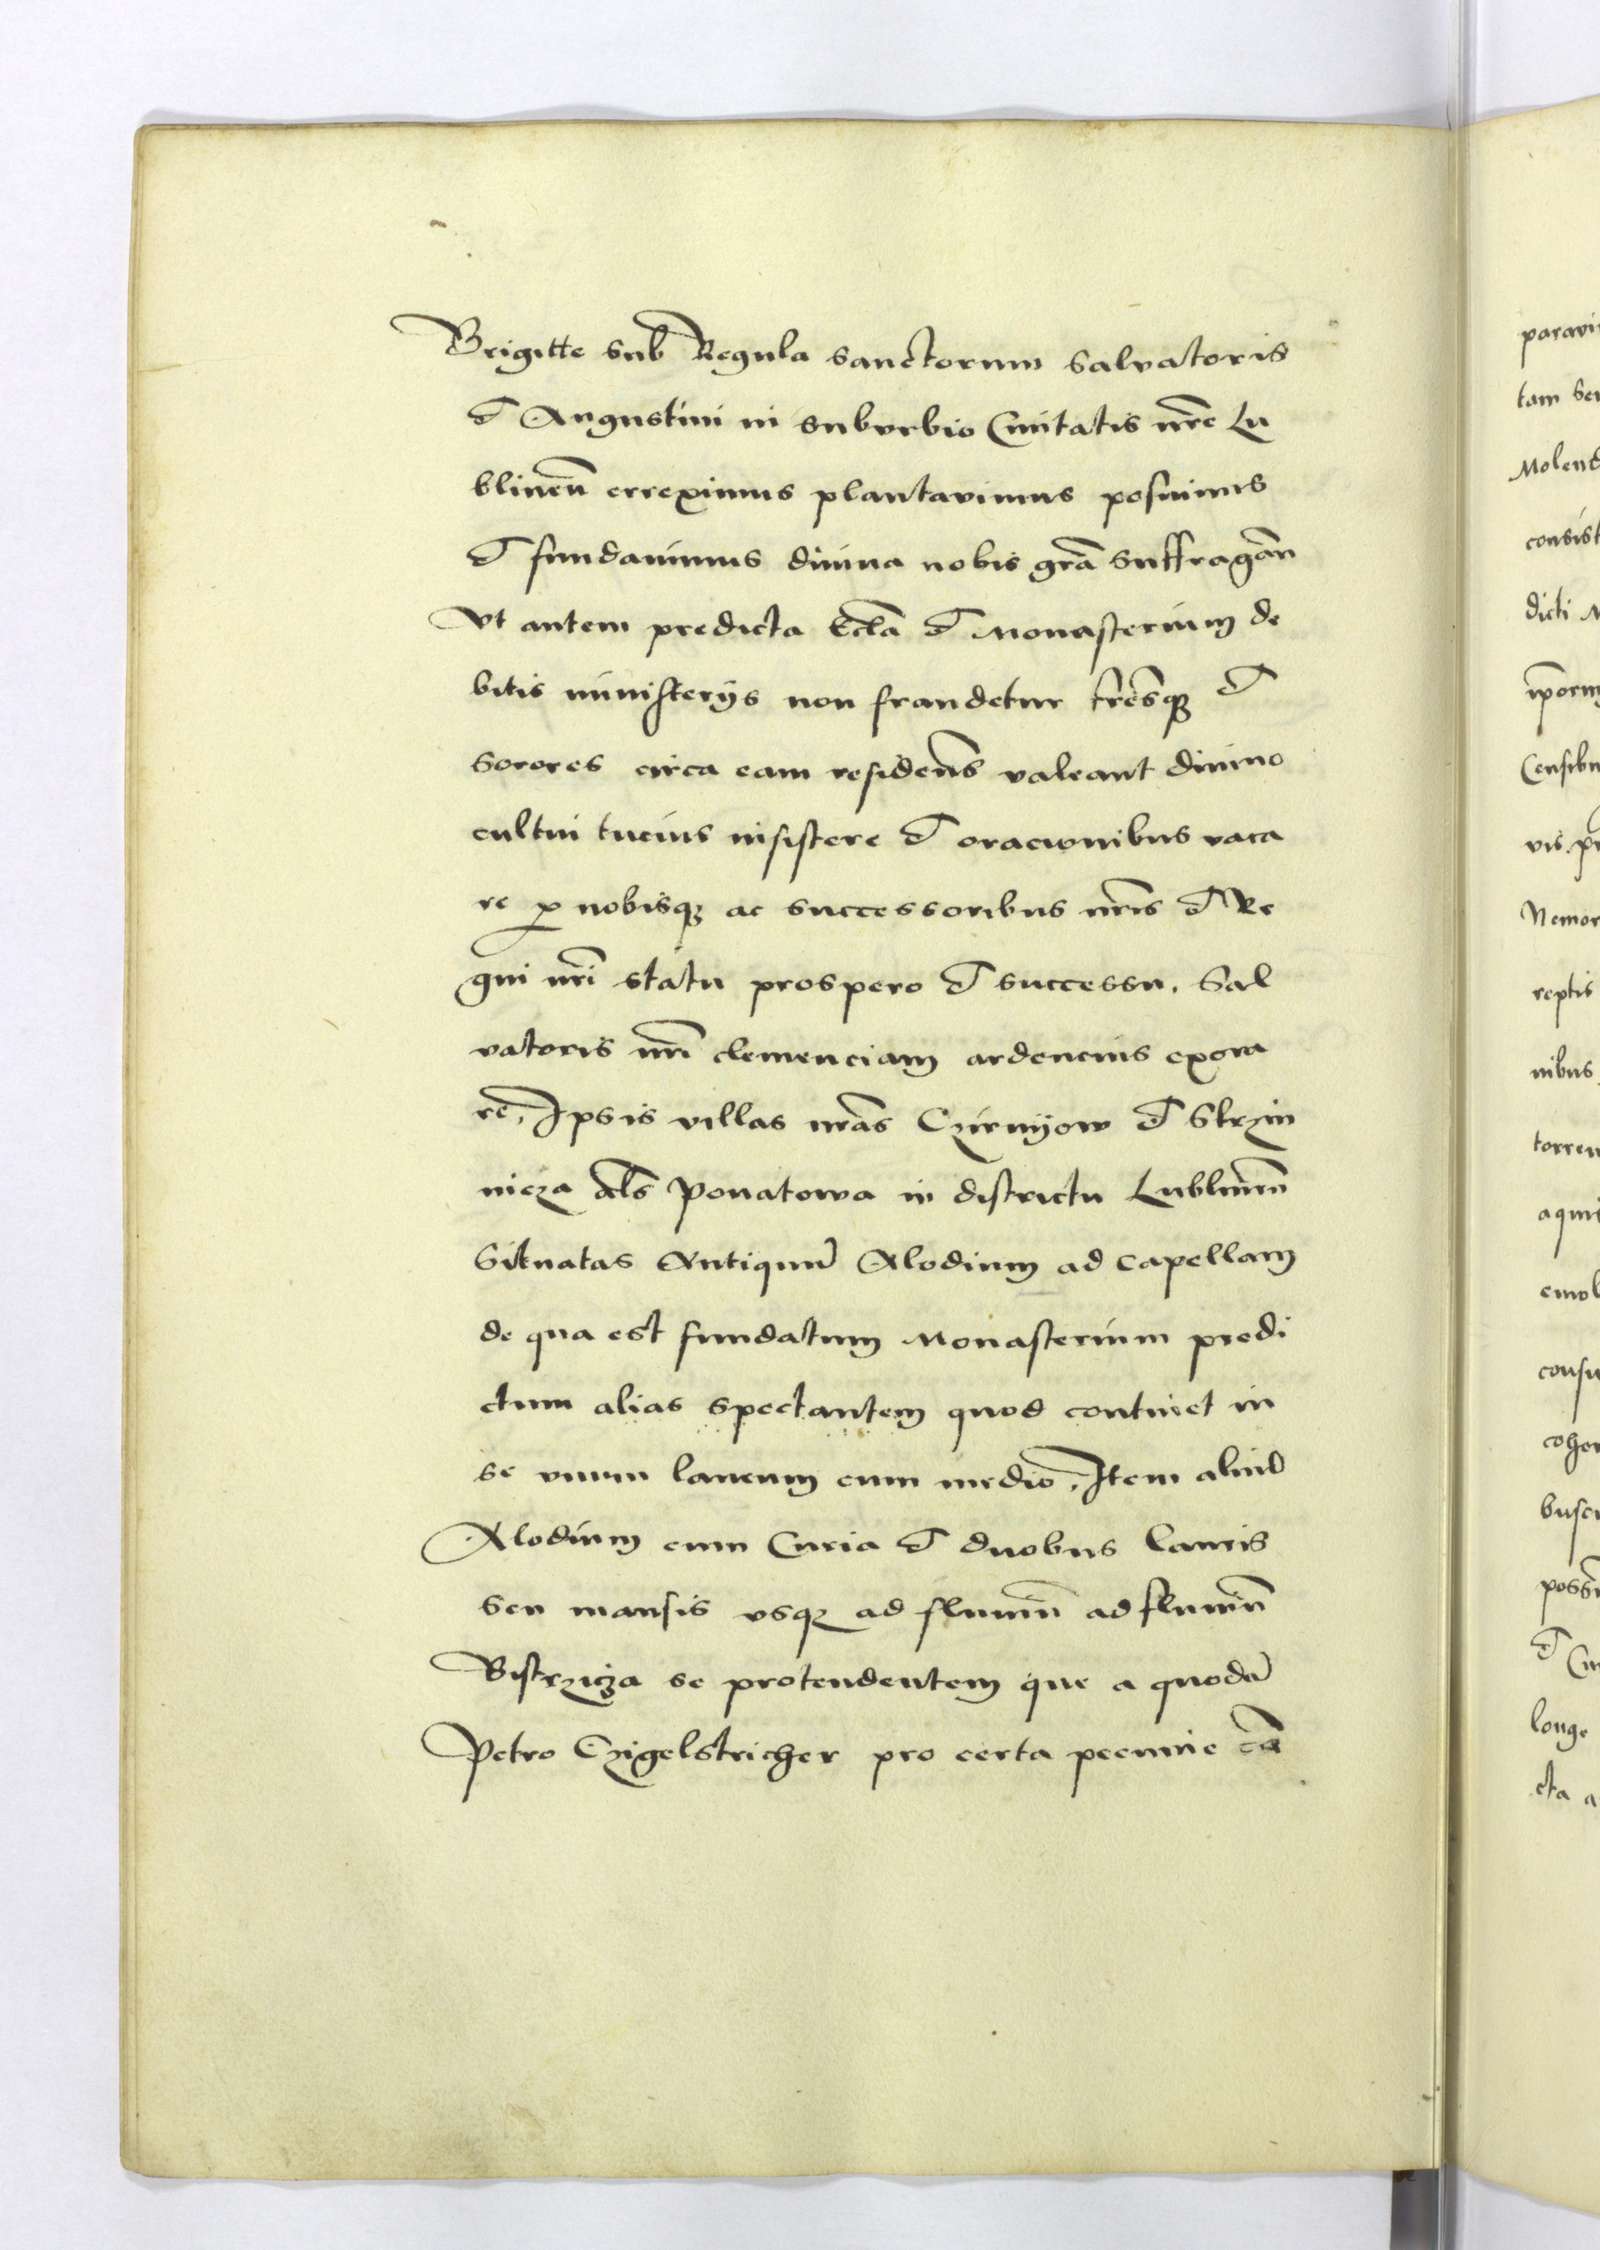 Brigitte sub Regula sanctorum Salvatoris
et Augustini in suburbio Civitatis nrē Lu
blineñ erreximus plantavimus posuimus
et fundavimus divina nobis grā suffragan̄
Ut autem predicta Ecclā et Monasterium de
bitis ministerijs non fraudetur fresq̨ et
Sorores circa eam residen̄s valeant divino
cultui tucius insistere et oracionibus vaca
re p nobisq̨ ac successoribus nrīs et Re
gni nrī statu prospero et successu. Sal
vatoris nrī clemenciam ardencius exora
re. Ipsis villas nrās Czirnijow et Strzin
nicza als Ponatowa in districtu Lublineñ
Situatas Antiquū Alodium ad Capellam
de qua est fundatum Monasterium predi
ctum alias spectantem quod continet in
se vnum laneum cum medio. Item aliud
Alodium cum Curia et duobus laneis
seu mansis vsq̨ ad flumeñ ad flumeñ
Bistrzicza se protendentem que a quodā
Petro Czigelstricher pro certa pecunie cā
paravi
tam
Molend
consist
dicti
ipōrum
Censibu
vis
Nemor
reptis
nibus
torren
aquis
emol
consu
coher
possi
et
longe
cta a